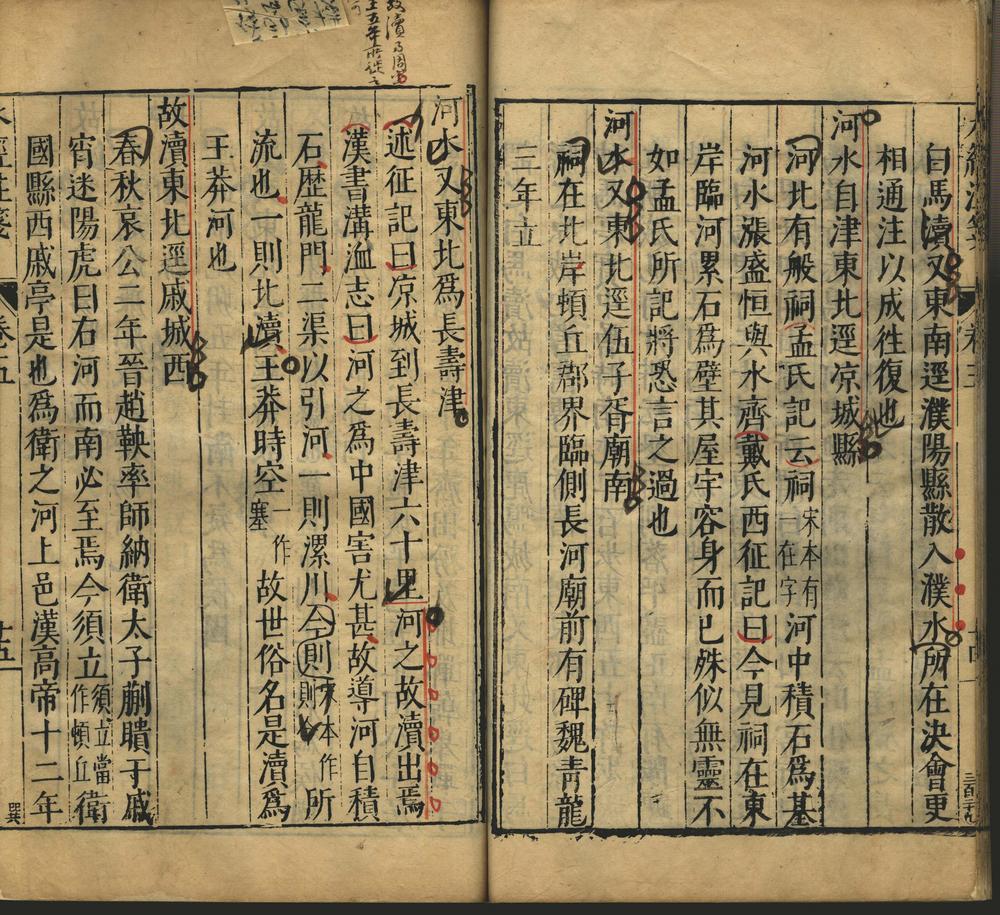 白馬瀆又東南逕濮陽縣散入濮水所在決會更
相通注以成徃復也
河水自津東北逕凉城縣
河北有般祠孟氏記云祠宋本有一在字河中積石爲基
河水漲盛恒與水齊戴氏西征記曰今見祠在東
岸臨河累石爲壁其屋宇容身而已殊似無靈不
如孟氏所記將恐言之過也
河水又東北逕伍子胥廟南
祠在北岸頓丘郡界臨側長河廟前有碑魏靑龍
三年立
河水又東北爲長壽津
述征記曰凉城到長壽津六十里河之故瀆出焉
漢書溝洫志曰河之爲中國害尤甚故導河自積
石歴龍門二渠以引河一則漯川今則宋本作則所
流也一則北瀆王莽時空一作塞故世俗名是瀆爲
王莽河也
故瀆東北逕戚城西
春秋哀公二年晉趙鞅率師納衛太子蒯聵于戚
宵迷陽虎曰右河而南必至焉今須立須立當作頓丘衛
國縣西戚亭是也爲衛之河上邑漢高帝十二年
水經注箋
卷五
十五